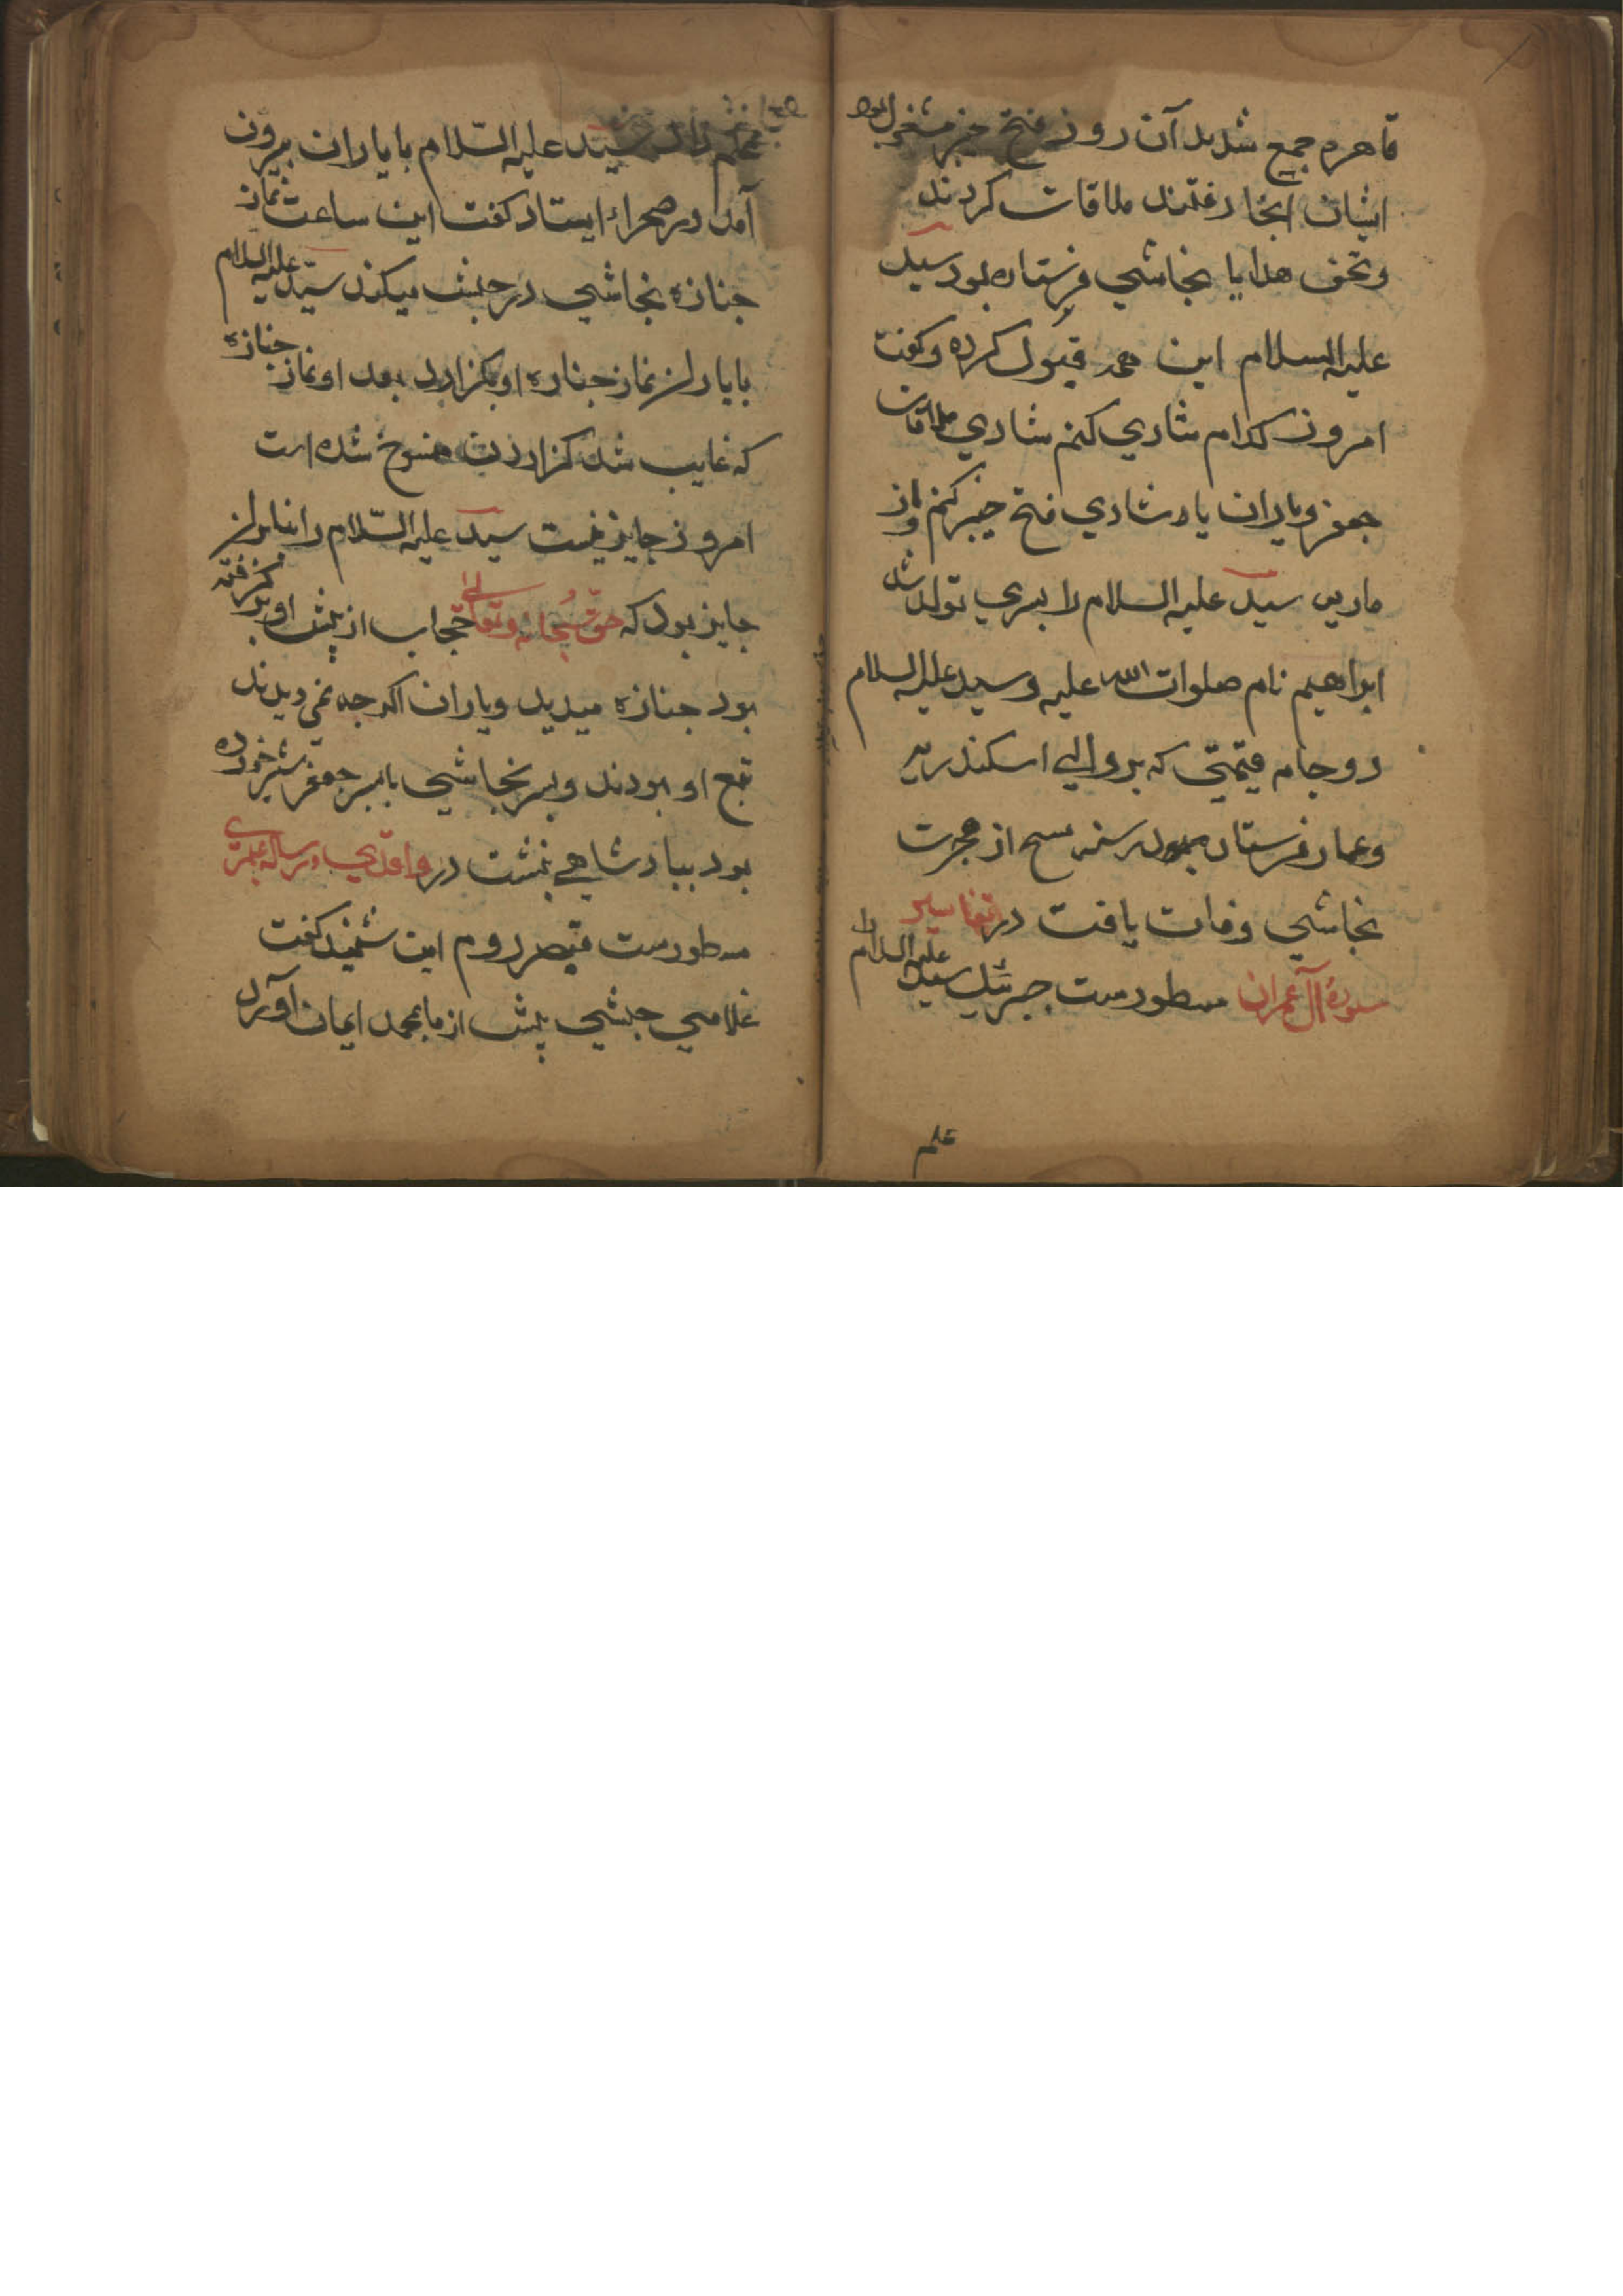 قاهره جمع شدید آن روز فتح خیبر مشغول بود
ایشان آنجا رفتند ملاقات کردند
و تحف هدایا نجاشی فرستاده بود سید
علیه السلام این همه قبول کرده و گفت
امروز کدام شادی کنم شادی ملاقات
جعفر و یاران یا دشادی فتح خیبر کنم و از
ماریه سید علیه السلام را پسری تولد شد
ابراهیم نام صلوات الله علیه و سید علیه السلام
دو جامه قیمتی که بر والی اسکندریه
و عمار فرستاده بود سنه تسع از هجرت
نجاشی وفات یافت در تفاسیر
سورهٔ آل عمران مسطورست جبرئیل سید علیه السلام را
علم
سید علیه السّلام با یاران بیرون
آمد در صحراء ایستاد گفت این ساعت نماز
جنازه نجاشی در حبش میکنند سیّد علیه السلام
با یاران نماز جنازه او بگزارد بعد او نماز جنازه
که غایب شد گزاردن منسوخ شده است
امروز جایز نیست سید علیه السّلام را بنابران
جایز بود که حقّ سُبحانه و تعالی حجاب از پیش او بر گرفته
بود جنازه میدید و یاران اگرچه نمی دیدند
تبع او بودند و پسر نجاشی با پسر جعفر شیر خورده
بود ببادشاهی بنشست در واقدی و رساله عمری
مسطورست قیصر روم این شنید گفت
غلامی حبشی پیش از ما بمحمد ایمان آورد